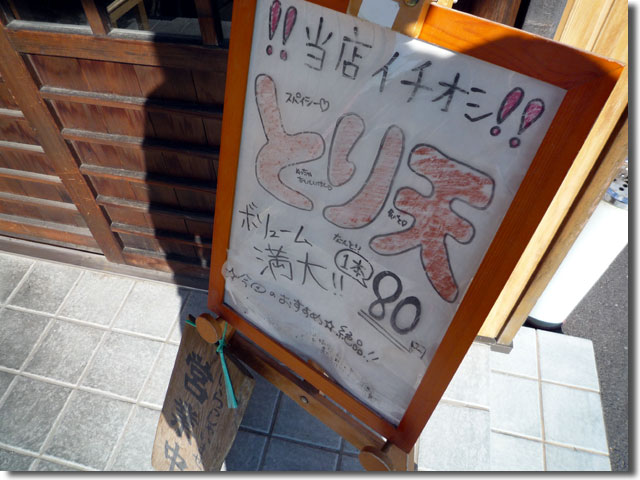 !!当店イチオシ!!
スパイシー♡
とり天
ボリューム
満大!!
なんと!!
1本
80円
のおすすめ☆絶品!!
営業中